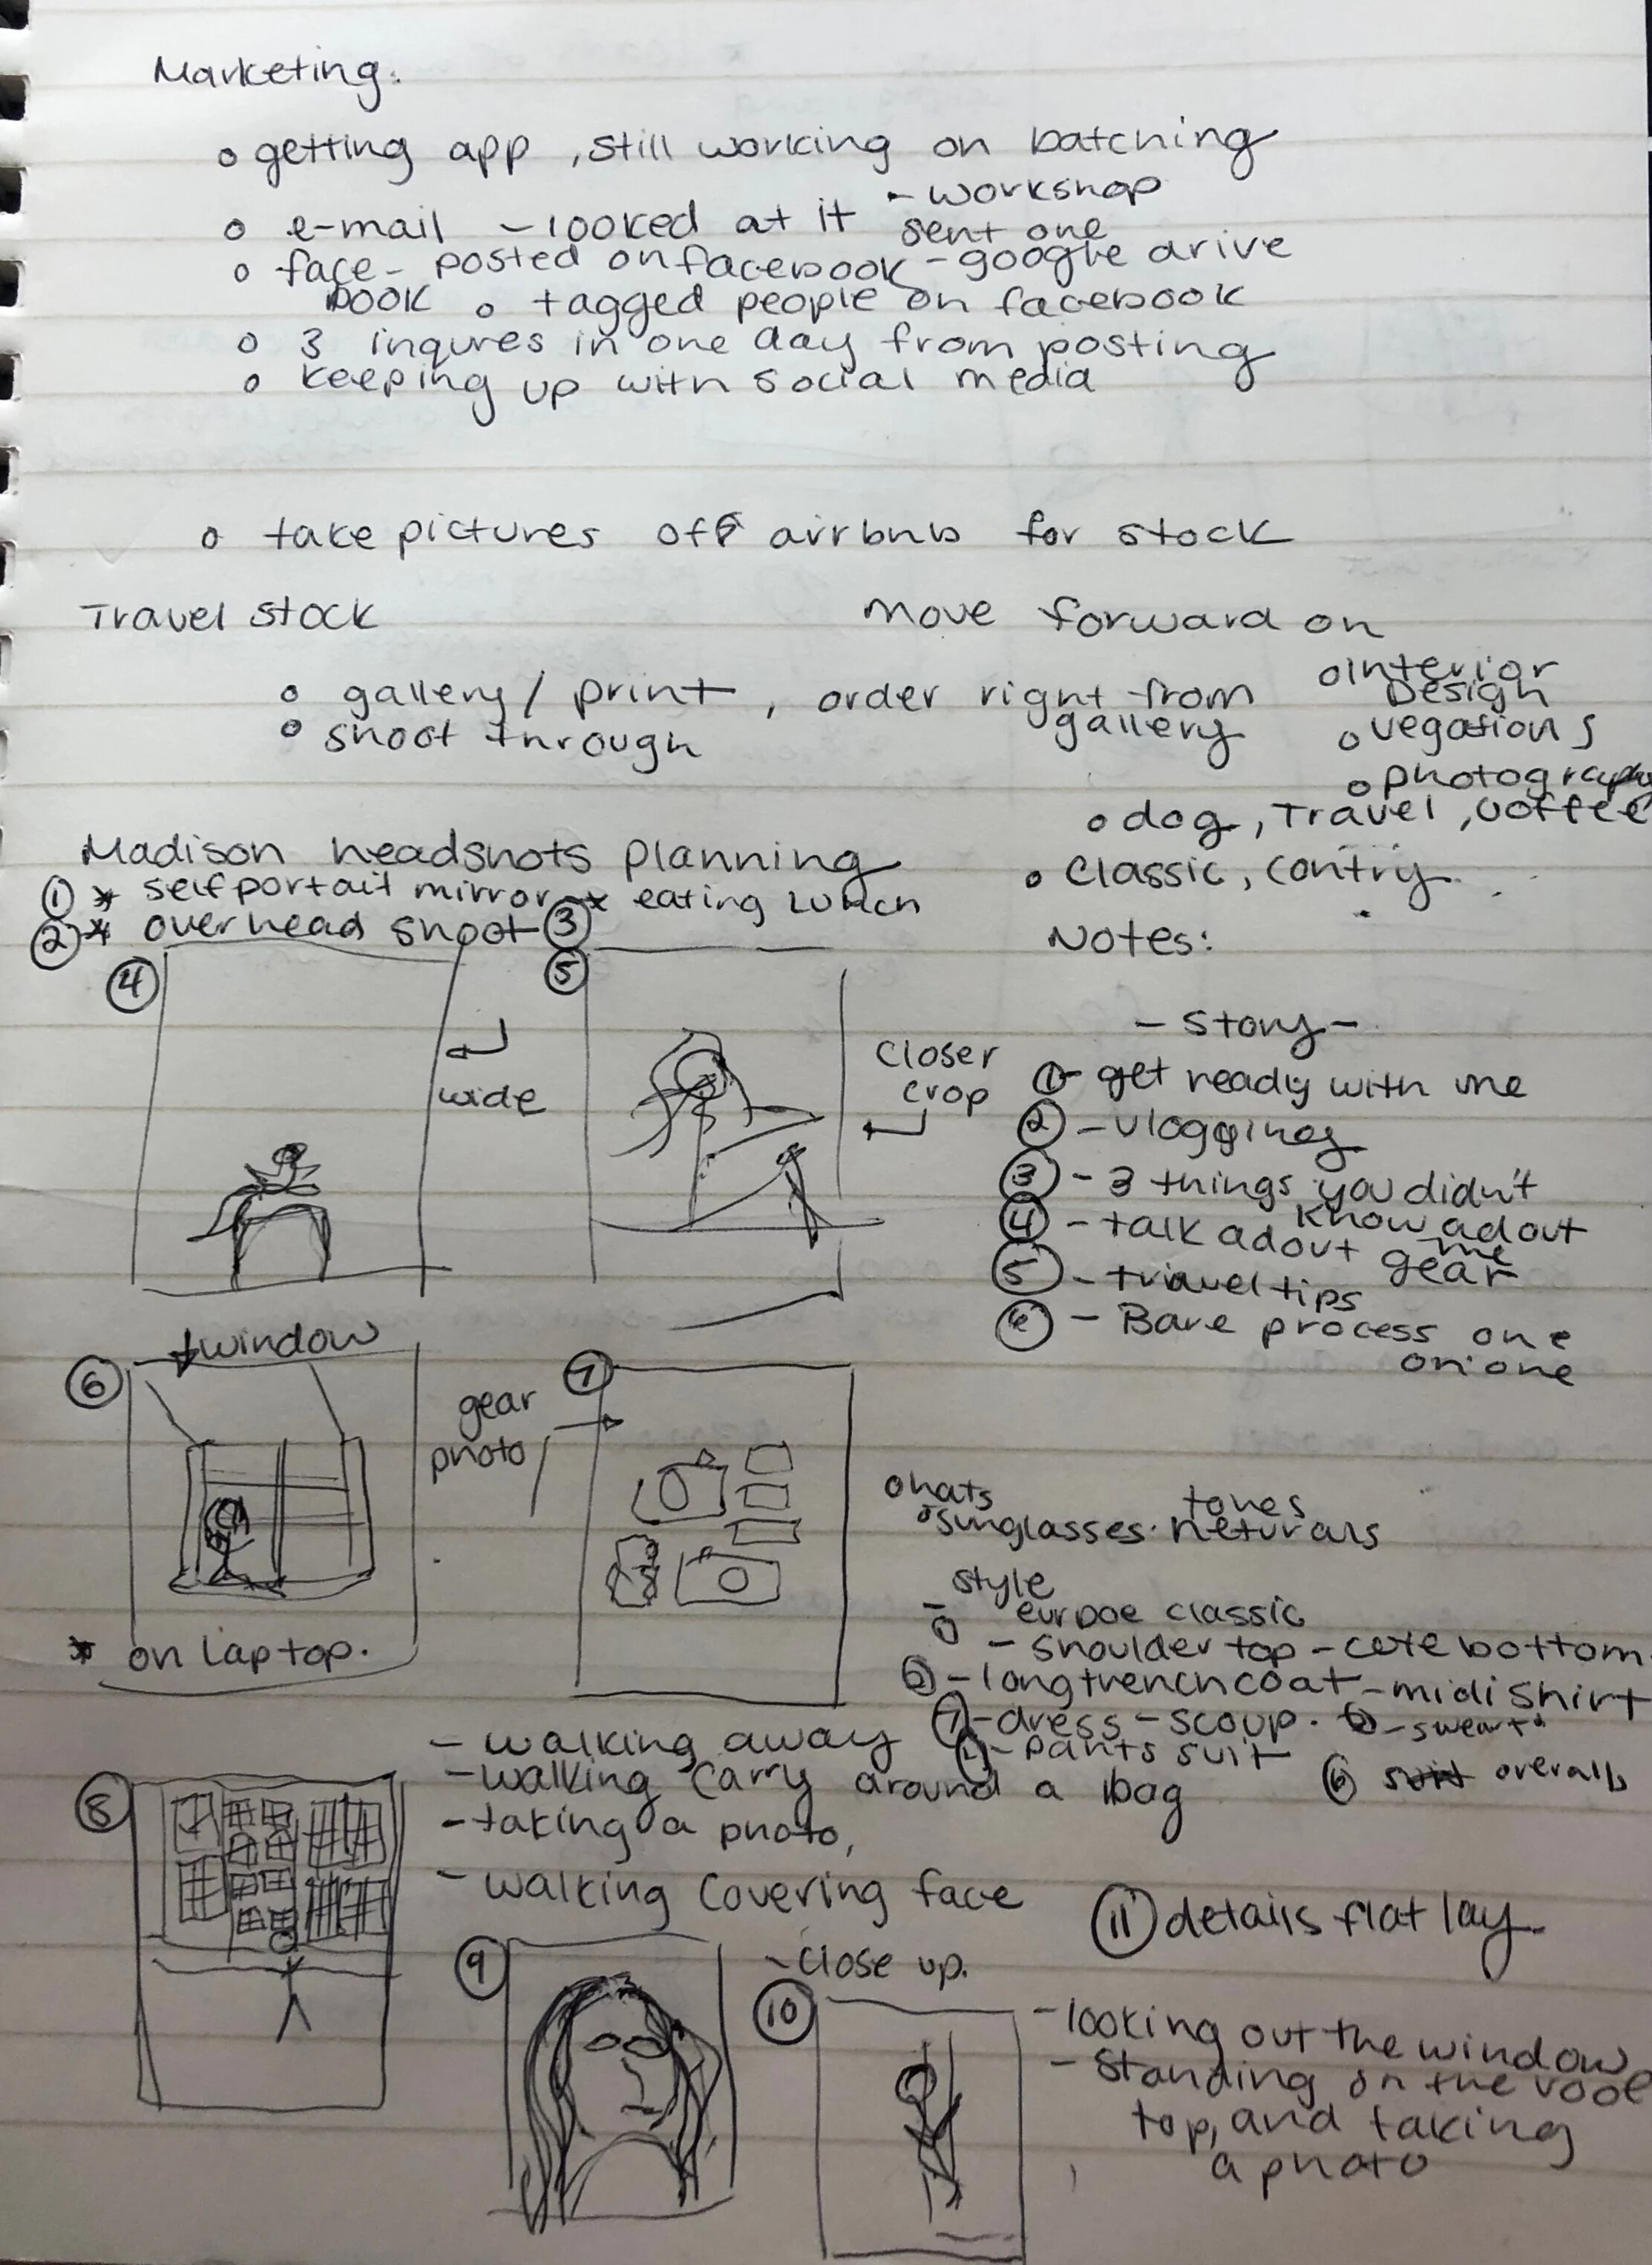 Marketing:
o getting app, still working on batching
- workshop
o e-mail - looked at it sent one
o face- posted on facebook - google drive
book o tagged people on facebook
o 3 inqures in one day from posting
o keeping up with social media
o take pictures off airbnb for stock
Travel stock
o gallery / print, order right from
gallery
o shoot through
move forward on
o Interior
Design
o vegations
o photography
o dog, Travel, coffee
o Classic, Contry
Madison headshots planning
① * self portait mirror * eating Lunch
② * overhead shoot ③
④
wide
⑤
Closer
crop
Notes:
- Story -
① - get ready with me
② - vlogging
③ - 3 things you didn't
know adout
me
④ - talk adout gear
⑤ - travel tips
⑥ - Bare process one
on one
⑥ window
* on laptop.
gear
photo
⑦
o hats
o sunglasses.
tones
neturals
style
- eurpoe classic
- shoulder top - cute bottom
- long trench coat - midi shirt
- dress - scoup. - sweart
- pants suit
⑥ overalls
- walking away
- walking carry around a bag
- taking a photo,
- walking Covering face
⑧
⑪ details flat lay
⑨
- Close up.
⑩
- looking out the window
- Standing on the roof
top, and taking
a photo